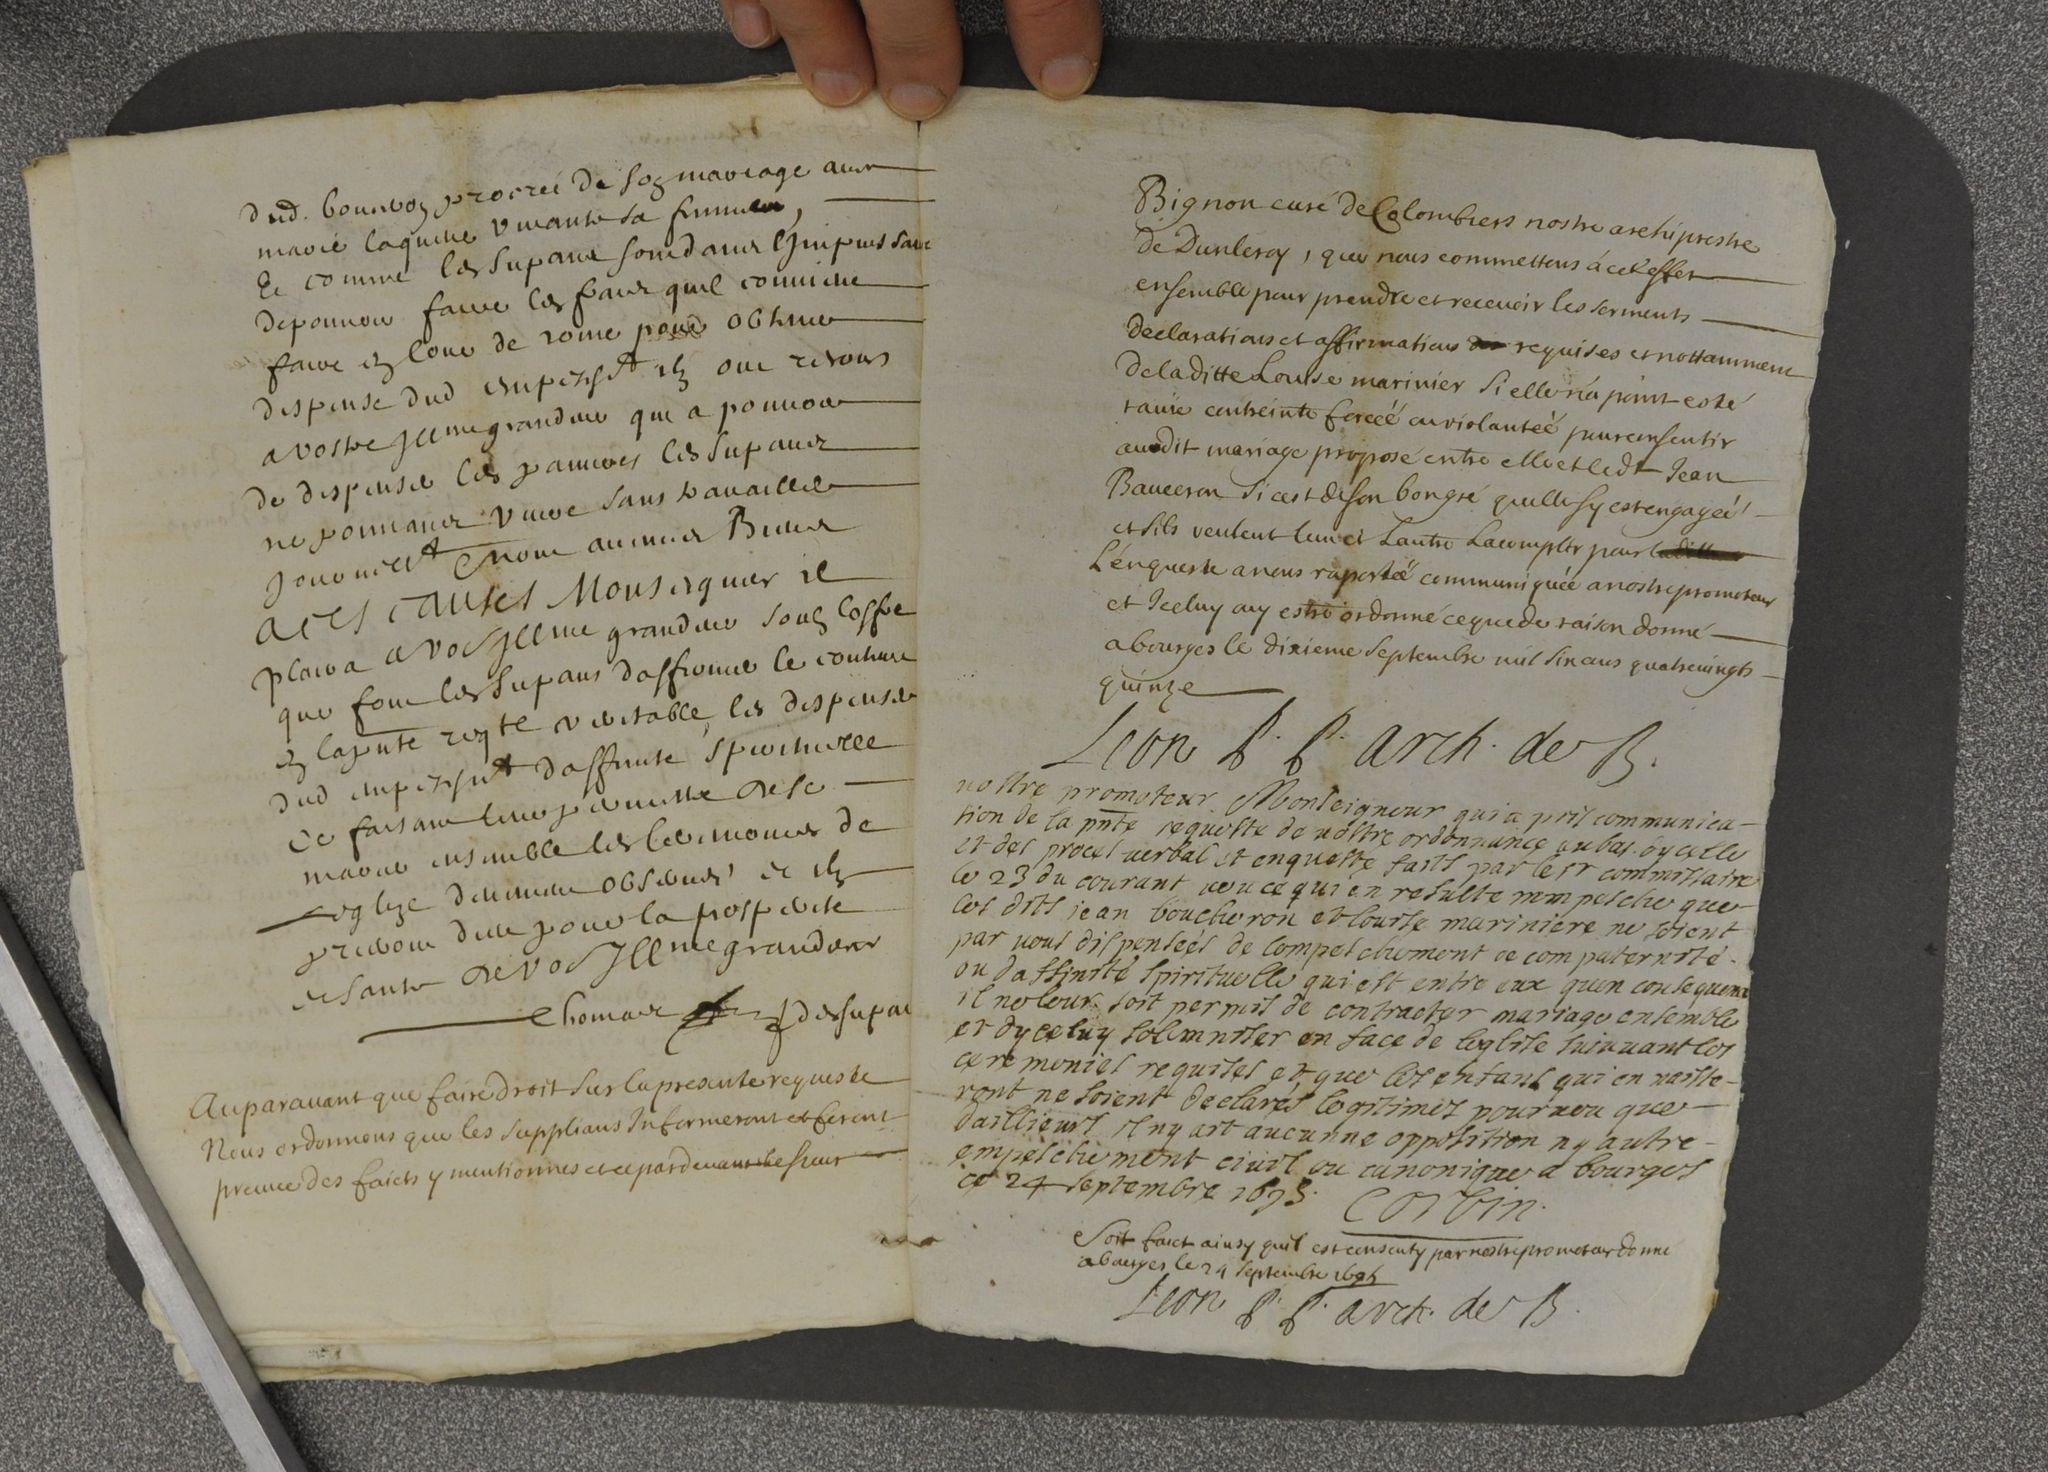 dud. boucheron procreé de son mariage avec
marié laquelle vivante sa femme,
Et comme les supans sont dans limpuissance
de pouvoir faire les frais quil convient
faire en cour de rome pour obtenir
dispense dud empeschemt ilz ont recours
a vostre Illme grandeur qui a pouvoir
de dispenser les pauvres les supans
ne pouvans vivre sans travailler
Journellemt
A CES CAUSES Monseigneur il
plaira a vos Illme grandeur soubz loffre
que font les supans daffirmer le contenu
en la pnte reqte veritable, les dispenser
dud empeschemt daffinité spirituelle
Ce faisant leur permettre de se
marier ensemble les ceremonies de
leglize deuement observeés et ilz
priront dieu pour la prosperité
et santé de vos Illme grandeur
Thomas pr desupans
Auparavant que faire droit sur la presente requeste
Nous ordonnons que les supplians Informeront et feront
preuve des faicts y mentionnes et ce pardevant le sieur
Bignon curé de Colombiers nostre archiprestre
de Dunleroy, que nous commettons à cet effet
ensemble pour prendre et recevoir les serments
declarations et affirmations requises et nottamment
de la ditte Louise marinier si elle n'a point esté
ravie contreinte forceé ou violanteé pour consentir
audit mariage proposé entre elle et ledt Jean
Bauceron si cest de son bon gré quelle sy est engageé
et sils veulent lun et Lautre Lacomplir pour
L'enqueste a nous raporteé communiqueé a nostre promoteur
et Iceluy ouy estre ordonné ce que de raison donné
a bourges le dixieme Septembre mil six cens quatrevingts
quinze
Leon P. P. arch. de B.
nostre promoteur. Monseigneur qui a pris communica-
tion de la pnte requeste de vostre ordonnance au bas dycelle
et des proces verbal et enqueste faits par le sr commissaire
le 23 du courant veu ce qui en resulte nempesche que
les dits jean boucheron et louise mariniere ne soient
par vous dispenseés de lempeschement de compaternité
ou daffinité spirituelle qui est entre eux quen consequence
il ne leur soit permis de contracter mariage ensemble
et dyceluy solemniser en face de leglise suivant les
ceremonies requises et que les enfans qui en naitte-
ront ne soient declarés legitimes pourvu que
dailleurs il ny ait aucunne opposition ny autre
empeschement civil ou canonique a bourges
ce 24 septembre 1695.
Corbin.
Soit faict ainsy quil est consenty par nostre promoteur donné
a bourges le 24 septembre 1695
Leon P. P. arch. de B.